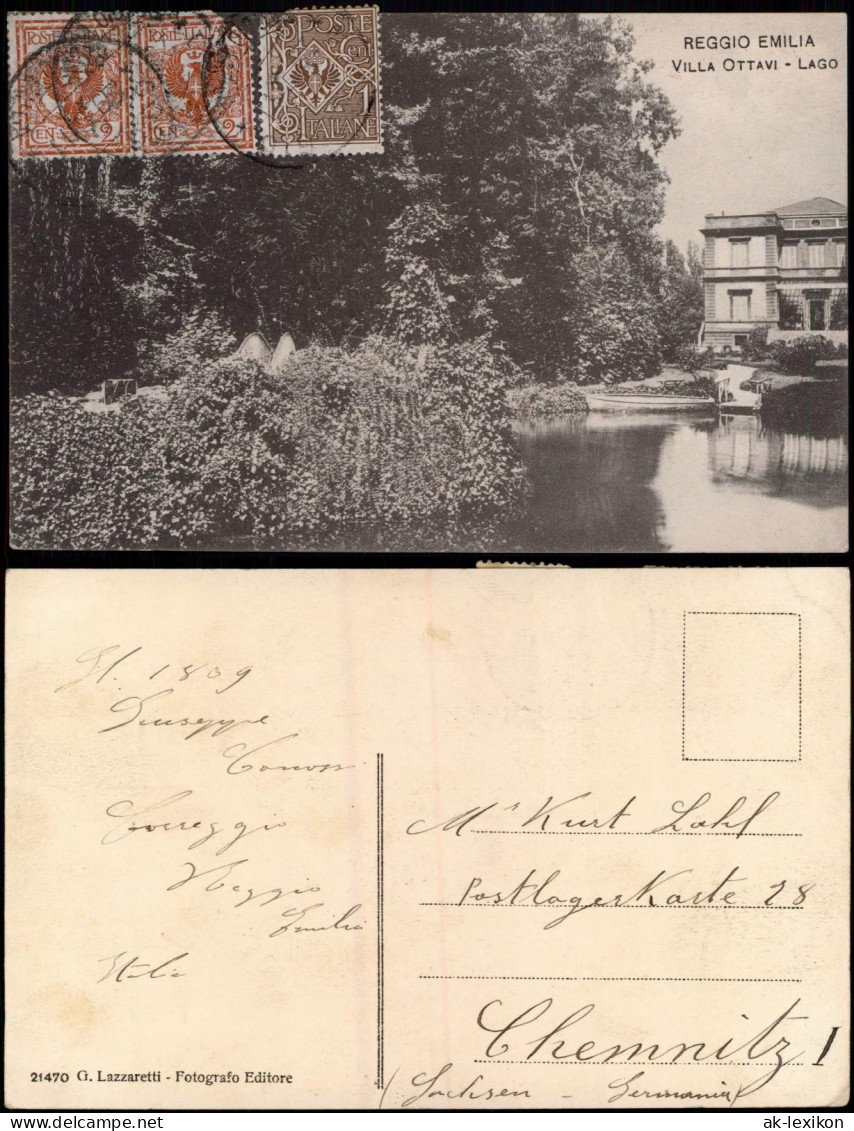 POSTE ITALIANE
CEN 2
POSTE ITALIANE
CEN 2
POSTE
CEN 1
ITALIANE
REGGIO EMILIA
VILLA OTTAVI - LAGO
1809
Giuseppe
Correggio
Reggio
Emilia
Italia
Mr Kurt Lohl
PostlagerKarte 28
Chemnitz I
(Sachsen - Germania)
21470 G. Lazzaretti - Fotografo Editore
ak-lexikon